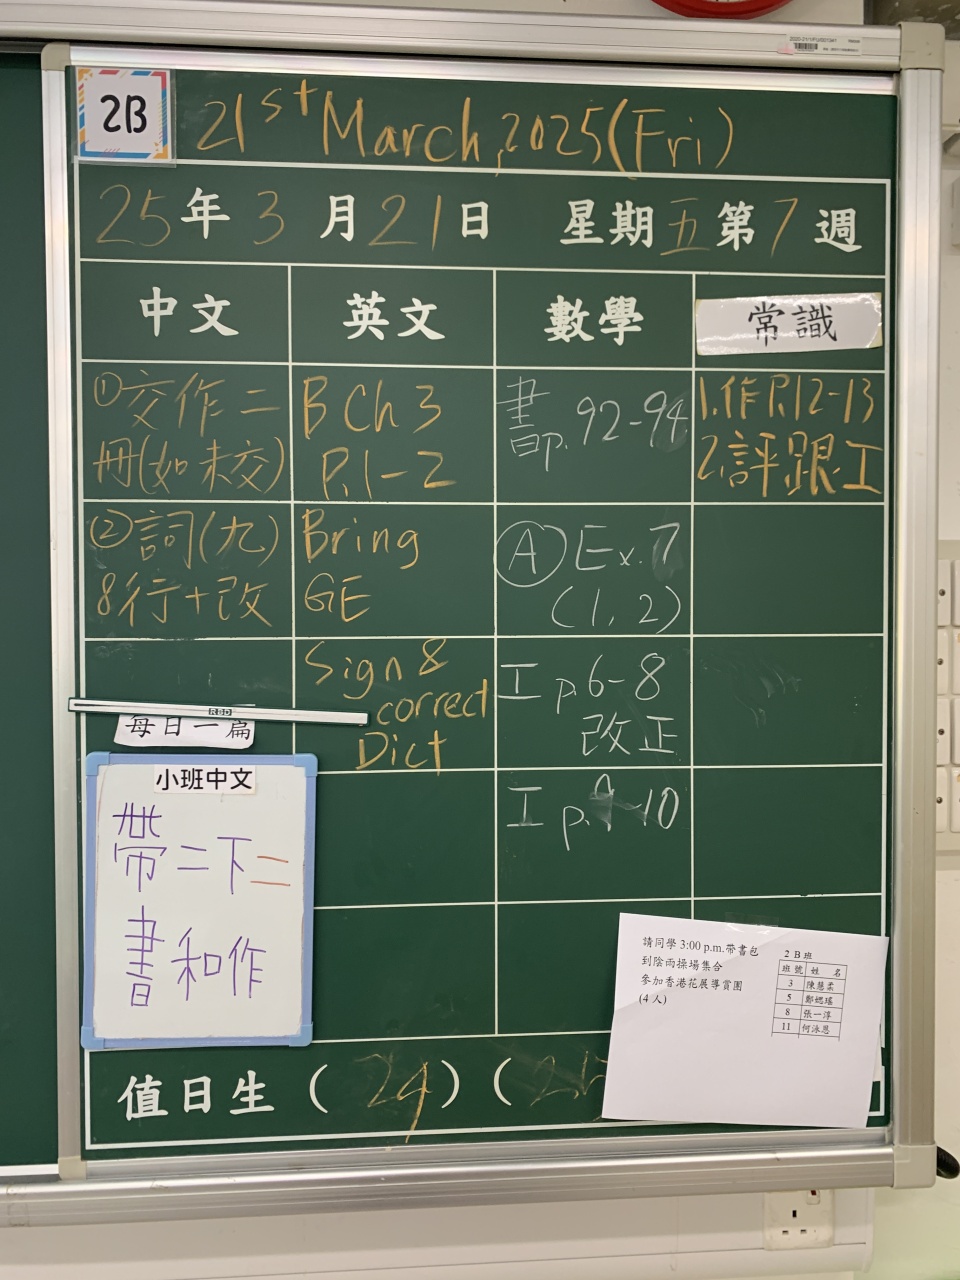 2B
21st March, 2025 (Fri)
25年3月21日 星期五第7週
中文
英文
數學
常識
①交作二
冊(如未交)
B Ch 3
P.1-2
書p. 92-94
1.作P.12-13
2.評跟工
②詞(九)
8行+改
Bring
GE
Ⓐ Ex. 7
(1, 2)
Sign 8
correct
Dict
工 p.6-8
改正
RBD
每日一篇
小班中文
帶二下二
書和作
工 p.9-10
請同學 3:00 p.m.帶書包
到陰雨操場集合
參加香港花展導賞團
(4 人)
2 B 班
班號 姓 名
3 陳慧柔
5 鄭媤瑤
8 張一淳
11 何泳恩
值日生 ( 24 ) (